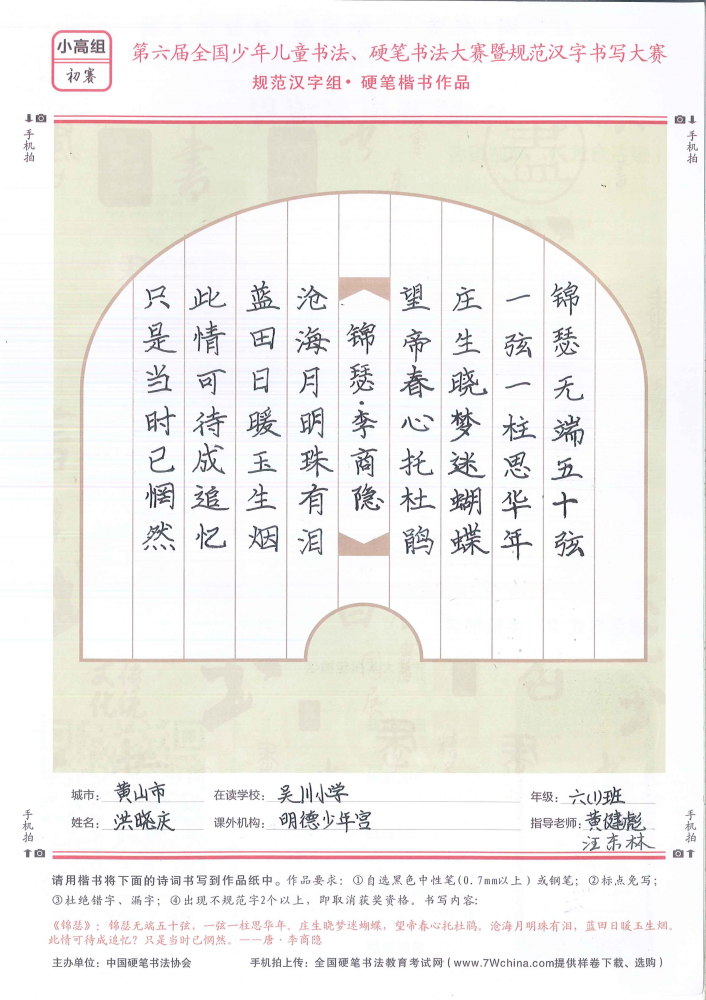 小高组
初赛
第六届全国少年儿童书法、硬笔书法大赛暨规范汉字书写大赛
规范汉字组·硬笔楷书作品
手机拍
手机拍
锦瑟无端五十弦
一弦一柱思华年
庄生晓梦迷蝴蝶
望帝春心托杜鹃
锦瑟·李商隐
沧海月明珠有泪
蓝田日暖玉生烟
此情可待成追忆
只是当时已惘然
城市：黄山市
在读学校：吴川小学
年级：六(1)班
姓名：洪晓庆
课外机构：明德少年宫
指导老师：黄健彪
汪东林
手机拍
手机拍
请用楷书将下面的诗词书写到作品纸中。作品要求：①自选黑色中性笔(0.7mm以上)或钢笔；②标点免写；
③杜绝错字、漏字；④出现不规范字2个以上，即取消获奖资格。书写内容：
《锦瑟》：锦瑟无端五十弦，一弦一柱思华年。庄生晓梦迷蝴蝶，望帝春心托杜鹃。沧海月明珠有泪，蓝田日暖玉生烟。
此情可待成追忆？只是当时已惘然。——唐·李商隐
主办单位：中国硬笔书法协会
手机拍上传：全国硬笔书法教育考试网（www.7Wchina.com提供样卷下载、选购）